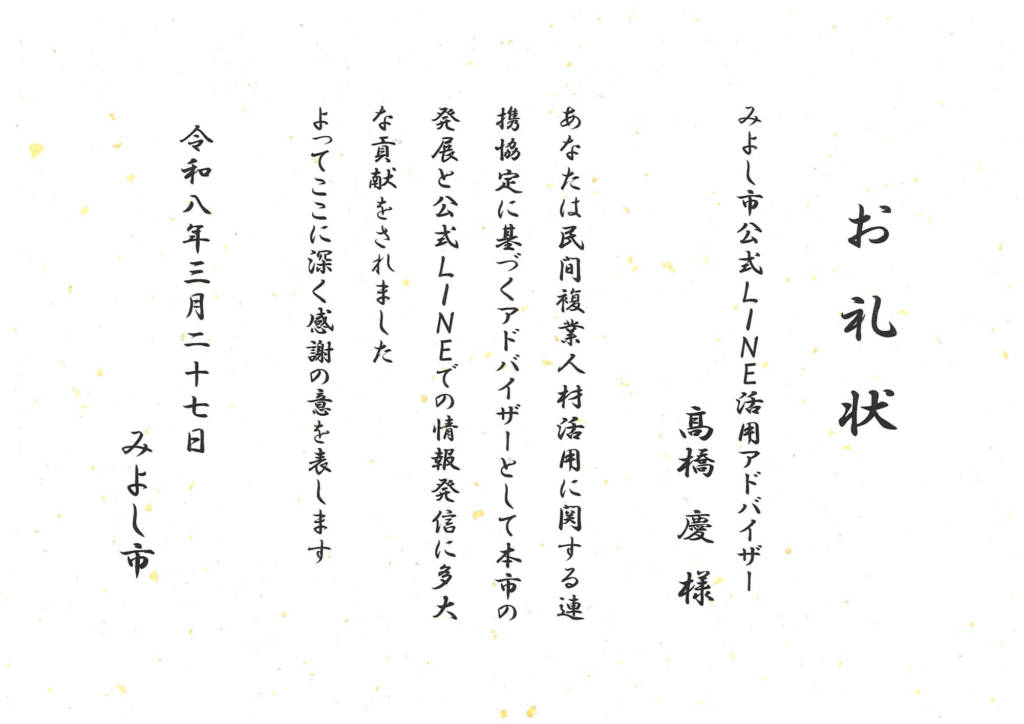 お礼状
みよし市公式LINE活用アドバイザー
髙橋 慶 様
あなたは民間複業人材活用に関する連
携協定に基づくアドバイザーとして本市の
発展と公式LINEでの情報発信に多大
な貢献をされました
よってここに深く感謝の意を表します
令和八年三月二十七日
みよし市